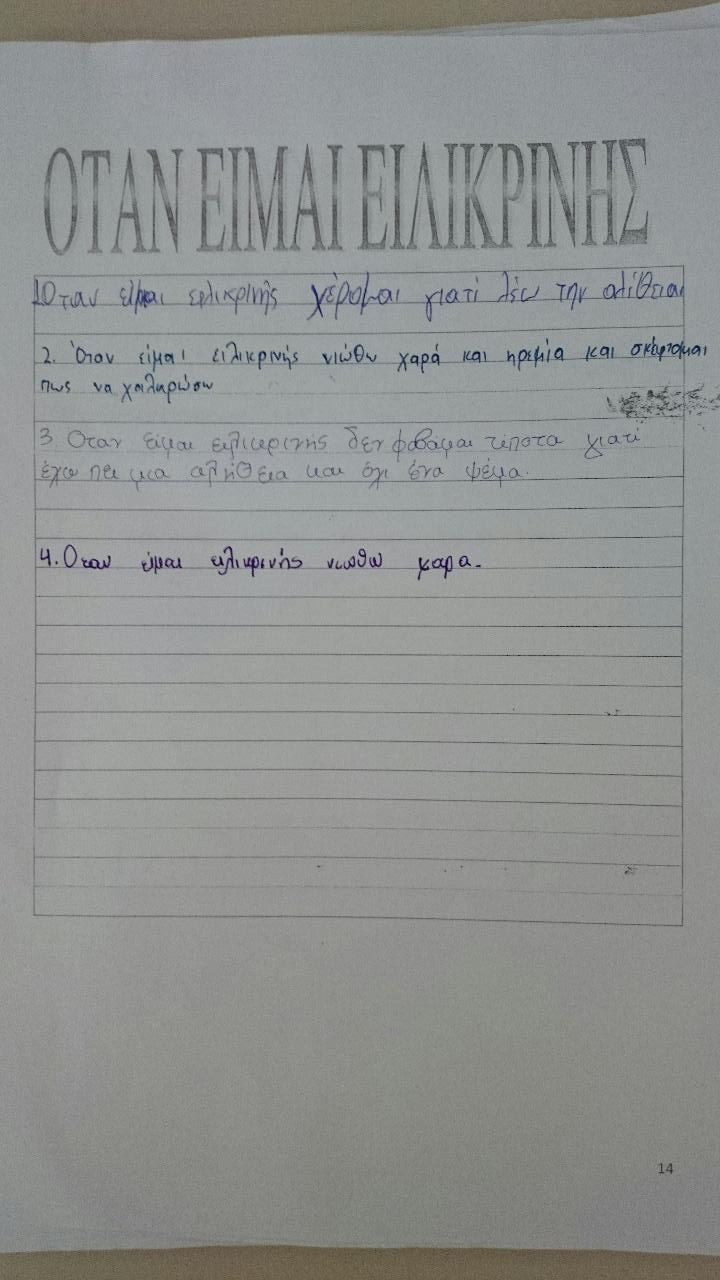 ΟΤΑΝ ΕΙΜΑΙ ΕΙΛΙΚΡΙΝΗΣ
1Οταν είμαι ειλικρινής χέρομαι γιατί λέω την αλίθεια
2. Όταν είμαι ειλικρινής νιώθω χαρά και ηρεμία και σκέφτομαι
πως να χαλαρώσω
3. Οταν είμαι ειλικρινής δεν φοβάμαι τίποτα γιατί
έχω πει μια αλήθεια και όχι ένα ψέμα.
4. Οταν είμαι ειλικρινής νιωθω χαρα.
14